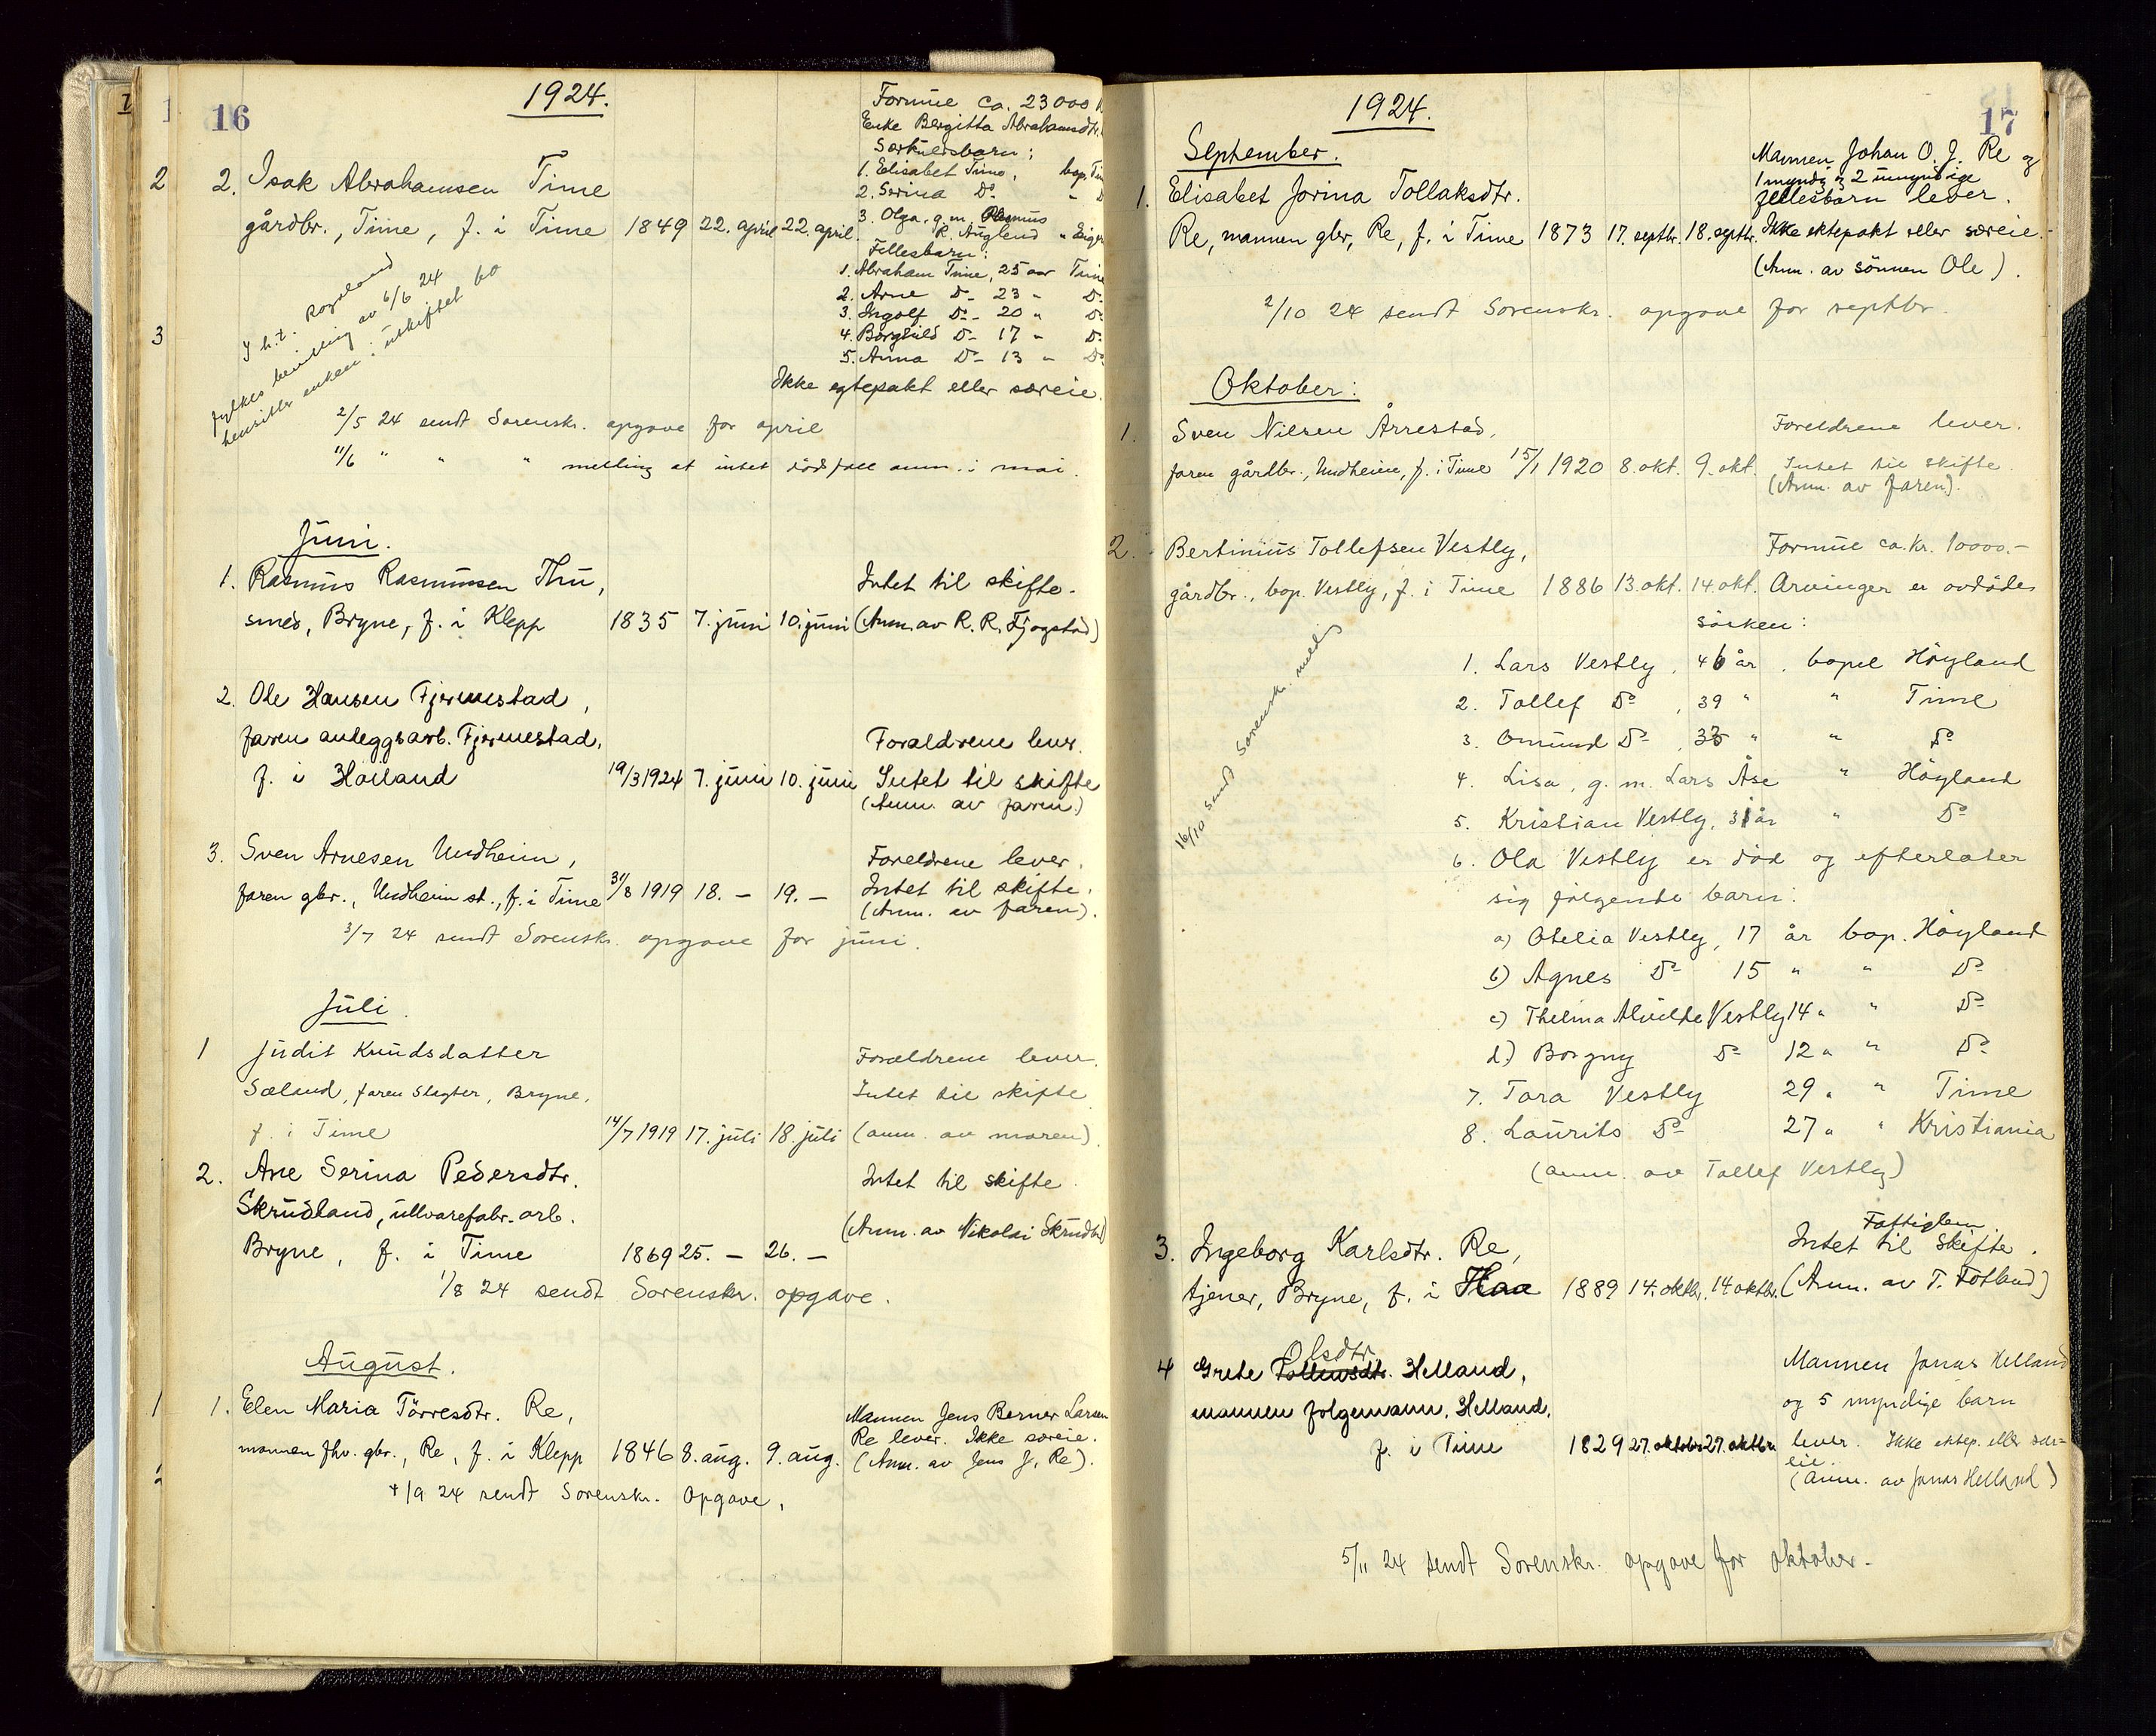 16
1924.
Formue ca. 23000
Enke Bergitta Abrahamsdtr.
Særkulsbarn:
1. Elisabet Time, bop. Ti
2. Serina Do " D
3. Olga, g. m. Rasmus
K. Auglend "
Fellesbarn:
1. Abraham Time, 25 aar Time
2. Arne Do - 23 - Do
3. Ingolf Do - 20 " Do
4. Borghild Do - 17 - Do
5. Anna Do - 13 - Do
Ikke egtepakt eller særeie.
2 2. Isak Abrahamsen Time
gårdbr., Time, f. i Time 1849 22. april 22. april.
3
I h.t. Rogaland
fylkes bevilling av 6/6 24
hensitter enken i uskiftet bo
2/5 24 sendt Sorenskr. opgave for april
11/6 " " " melling at intet dödsfall anm. i mai.
Juni.
1. Rasmus Rasmussen Thu, Intet til skifte.
smed, Bryne, f. i Klepp 1835 7. juni 10. juni (Anm. av R. R. Fjogstad)
2. Ole Hansen Fjermestad,
faren anleggsarb. Fjermestad, Foraldrene lever.
f. i Holland 19/3 1924 7. juni 10. juni Intet til skifte
(Anm. av faren.)
3. Sven Arnesen Undheim, Foreldrene lever.
faren gbr., Undheim st., f. i Time 31/8 1919 18. - 19. - Intet til skifte.
(Anm. av faren).
3/7 24 sendt Sorenskr. opgave for juni.
Juli.
1 Judit Knudsdatter Foreldrene lever.
Sæland, faren Slagter, Bryne, Intet til skifte
f. i Time 14/7 1919 17. juli 18. juli (anm. av moren).
2. Ane Serina Pedersdtr. Intet til skifte.
Skrudland, ullvarefabr. arb.
(Anm. av Nikolai Skrudld)
Bryne, f. i Time 1869 25. - 26. -
1/8 24 sendt Sorenskr. opgave.
August.
1 1. Elen Maria Törresdtr. Re, Mannen Jens Berner Larsen
Re lever. Ikke særeie.
mannen fhv. gbr., Re, f. i Klepp 1846 8. aug. 9. aug. (Anm. av Jens J. Re).
4/9 24 sendt Sorenskr. Opgave.
17
1924.
September.
Mannen Johan O. J. Re og
1 myndig og 2 umyndige
fellesbarn lever.
1. Elisabet Jorina Tollaksdtr.
Re, mannen gbr, Re, f. i Time 1873 17. septbr. 18. septbr. Ikke ektepakt eller særeie.
(Anm. av sönnen Ole).
2/10 24 sendt Sorenskr. opgave for septbr.
Oktober:
1. Sven Nilsen Årrestad, Foreldrene lever.
faren gårdbr., Undheim, f. i Time 15/1 1920 8. okt. 9. okt. Intet til skifte.
(Anm. av faren).
2. Bertinius Tollefsen Vestly, Formue ca. kr. 10000.-
gårdbr., bop. Vestly, f. i Time 1886 13. okt. 14. okt. Arvinger er avdödes
sösken:
16/10 sendt Sorensk. meld
1. Lars Vestly, 46 år, bopel Höyland
2. Tollef Do, 39 " " Time
3. Omund Do, 33 " " Do
4. Lisa, g. m. Lars Åse " Höyland
5. Kristian Vestly, 31 år " Do
6. Ola Vestly er död og efterlater
sig fölgende barn:
a) Otelia Vestly, 17 år bop. Höyland
b) Agnes Do 15 " " Do
c) Thelma Alvilde Vestly 14 " " Do
d.) Borgny Do 12 " " Do
7. Tora Vestly 29 " " Time
8. Laurits Do 27 " " Kristiania
(anm. av Tollef Vestly)
Fattiglem.
3. Ingeborg Karlsdtr. Re, Intet til skifte.
tjener, Bryne, f. i Haa 1889 14. oktbr. 14 oktbr. (Anm. av T. Fotland)
Olsdtr.
4 Grete Helland, Mannen Jonas Helland
mannen folgemann, Helland, og 5 myndige barn
f. i Time 1829 27. oktobr 27. oktbr. lever. Ikke ektep. eller sær-
eie.
(anm. av Jonas Helland)
5/11 24 sendt Sorenskr. opgave for oktober.